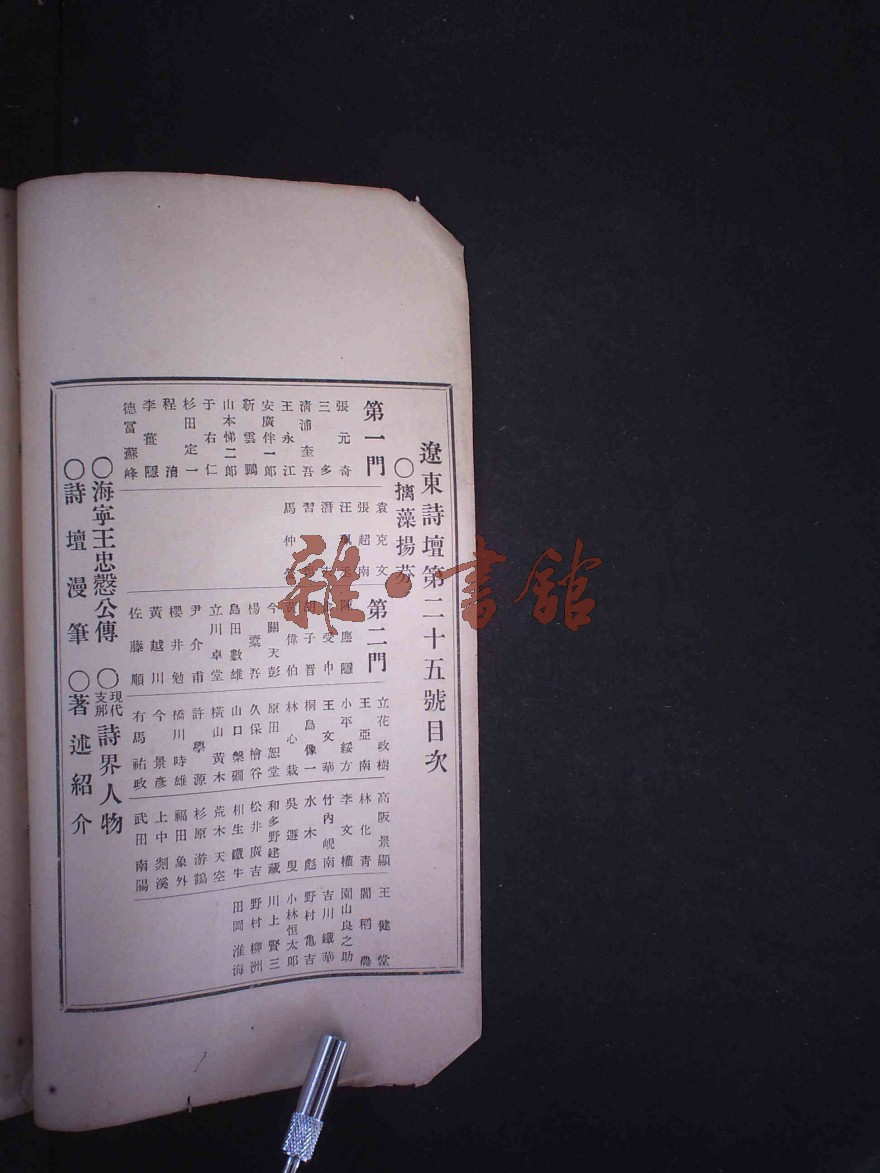 遼東詩壇第二十五號目次
○摛藻揚芬
第一門
張元奇
三多
清浦奎吾
王永江
安廣伴一郎
靳雲鵬
山本悌二郎
于右仁
杉田定一
程淯
李葆隱
德富蘇峰
袁克文
張超南
汪
潛
習
馬仲
第二門
陳應隱
受申
胡子晋
黃偉伯
今關天彭
楊槖吾
島田數雄
立川卓堂
尹介甫
櫻井勉
黃越川
佐藤順
立花政樹
王亞南
小平綏方
王文華
桐島像一
林心栽
原田恕堂
久保檜谷
山口槃礀
橫山黃木
許學源
橋川時雄
今景彥
有馬祐政
高阪景顯
林化青
李文權
竹內峴南
水木彪
吳遯叟
和多野建藏
松井廣吉
相生鐵牛
荒木天空
杉原游鶴
福田象外
上中剡溪
武田南陽
王健堂
閻稻農
園山良之助
吉川鐵華
野村龜吉
小林恒太郎
川上賢三
野村柳洲
田岡淮海
○海寧王忠慤公傳 ○現代支那詩界人物
○詩壇漫筆 ○著述紹介
雜·書館